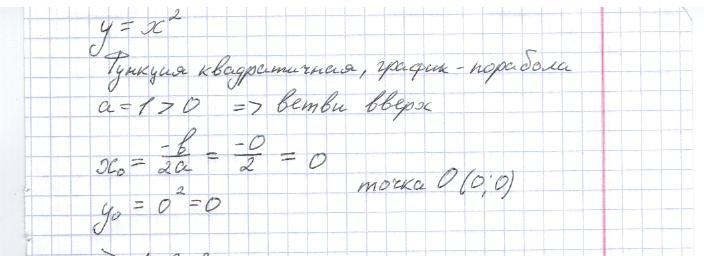 y = x²
Функция квадратичная, график - парабола
a = 1 > 0 => ветви вверх
x₀ = -b/2a = -0/2 = 0
точка O (0; 0)
y₀ = 0² = 0